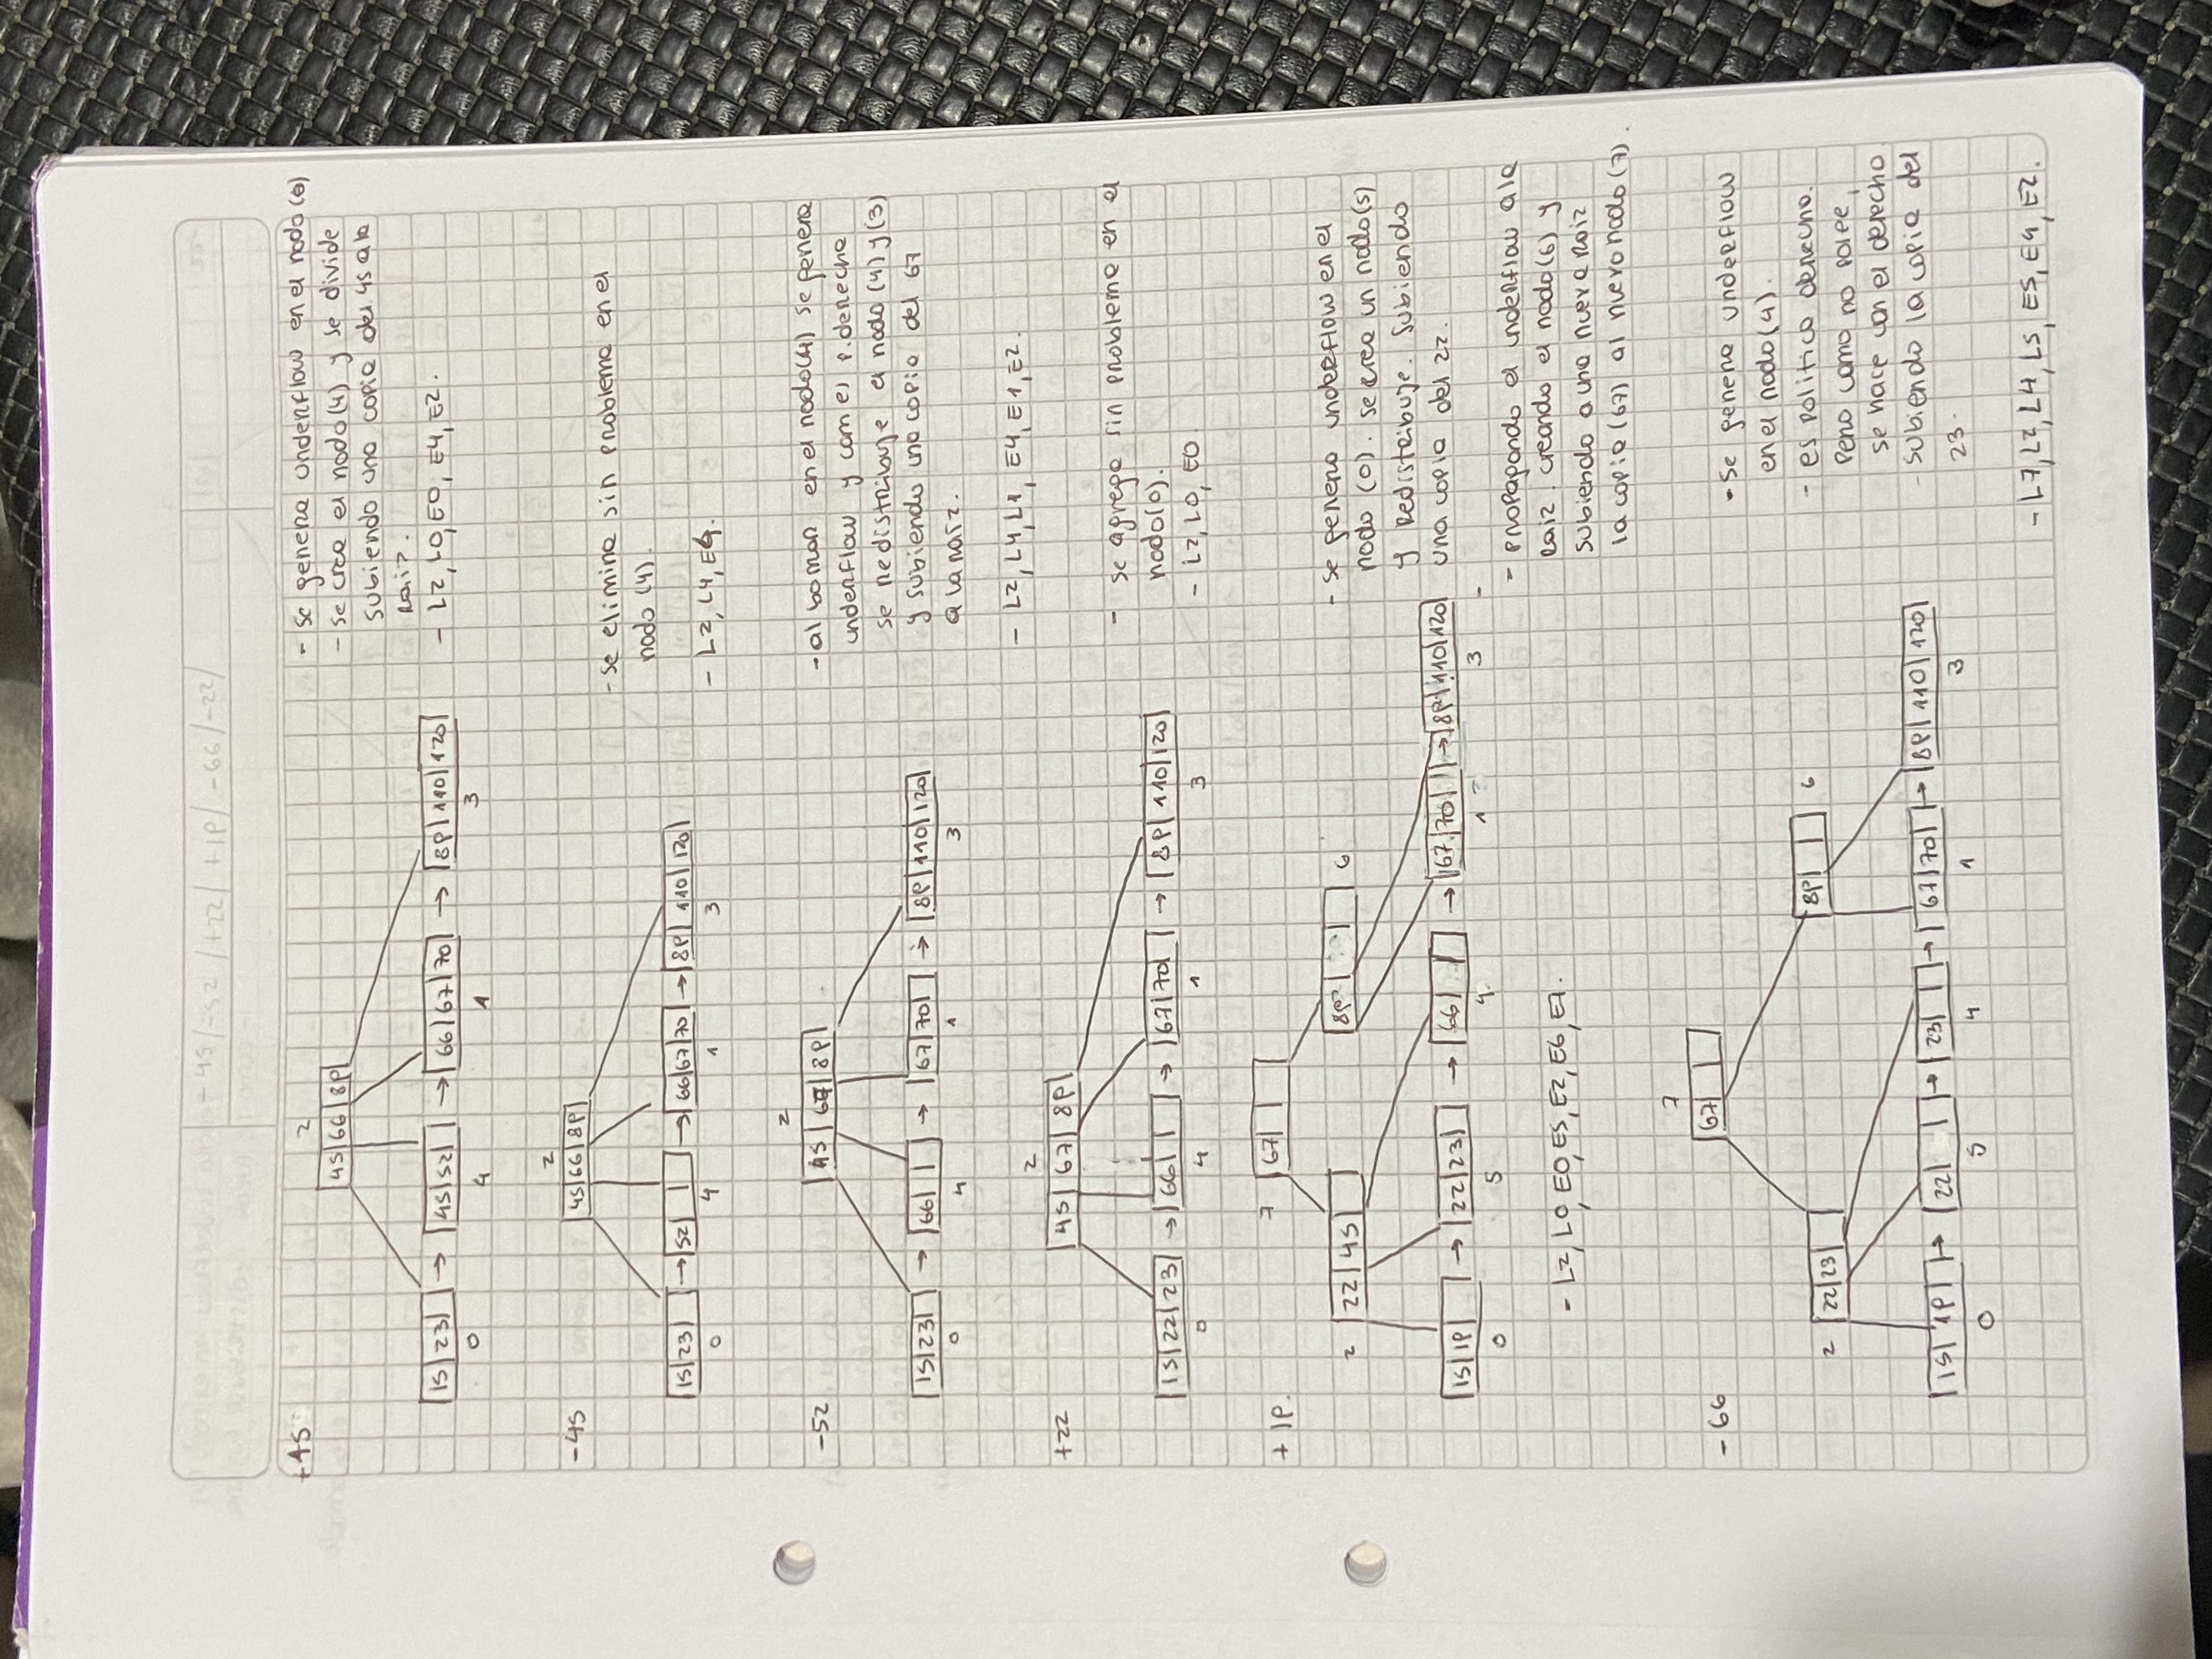 - 45 / - 52 / +22 / +19 / - 66 / -22 /
+45
2
45 | 66 | 89
15 | 23 → 45 | 52 → 66 | 67 | 70 → 89 | 110 | 120
0 4 1 3
- se genera underflow en el nodo (0)
- se crea el nodo (4) y se divide
subiendo una copia del 45 a la
raiz.
- L2, L0, E0, E4, E2.
-45
2
45 | 66 | 89
15 | 23 → 52 → 66 | 67 | 70 → 89 | 110 | 120
0 4 1 3
- se elimina sin problema en el
nodo (4).
- L2, L4, E4.
-52
2
45 | 67 | 89
15 | 23 → 66 → 67 | 70 → 89 | 110 | 120
0 4 1 3
- al borrar en el nodo (4) se genera
underflow y com es p. derecha
se redistribuye el nodo (4) y (3)
y subiendo una copia del 67
a la raiz.
- L2, L4, L1, E4, E1, E2.
+22
2
45 | 67 | 89
15 | 22 | 23 → 66 → 67 | 70 → 89 | 110 | 120
0 4 1 3
- se agrega sin problema en el
nodo (0).
- L2, L0, E0
+ 19.
7 67
2 22 | 45 89 6
15 | 19 → 22 | 23 → 66 → 67 | 70 → 89 | 110 | 120
0 5 4 1 3
- L2, L0, E0, E5, E2, E6, E7.
- se genera underflow en el
nodo (0). se crea un nodo (5)
y Redistribuye. Subiendo
una copia del 22.
-
- propagando el underflow a la
raiz. creando el nodo (6) y
subiendo a una nueva raiz
la copia (67) al nuevo nodo (7).
- 66
7
67
2 22 | 23 89 6
15 | 19 → 22 → 23 → 67 | 70 → 89 | 110 | 120
0 5 4 1 3
- se genera underflow
en el nodo (4).
- es politica derecha.
pero como no posee,
se hace con el derecho
- subiendo la copia del
23.
- L7, L2, L4, L5, E5, E4, E2.